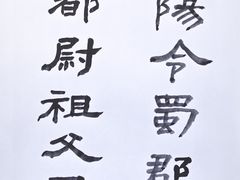 陽令蜀郡
都尉祖父